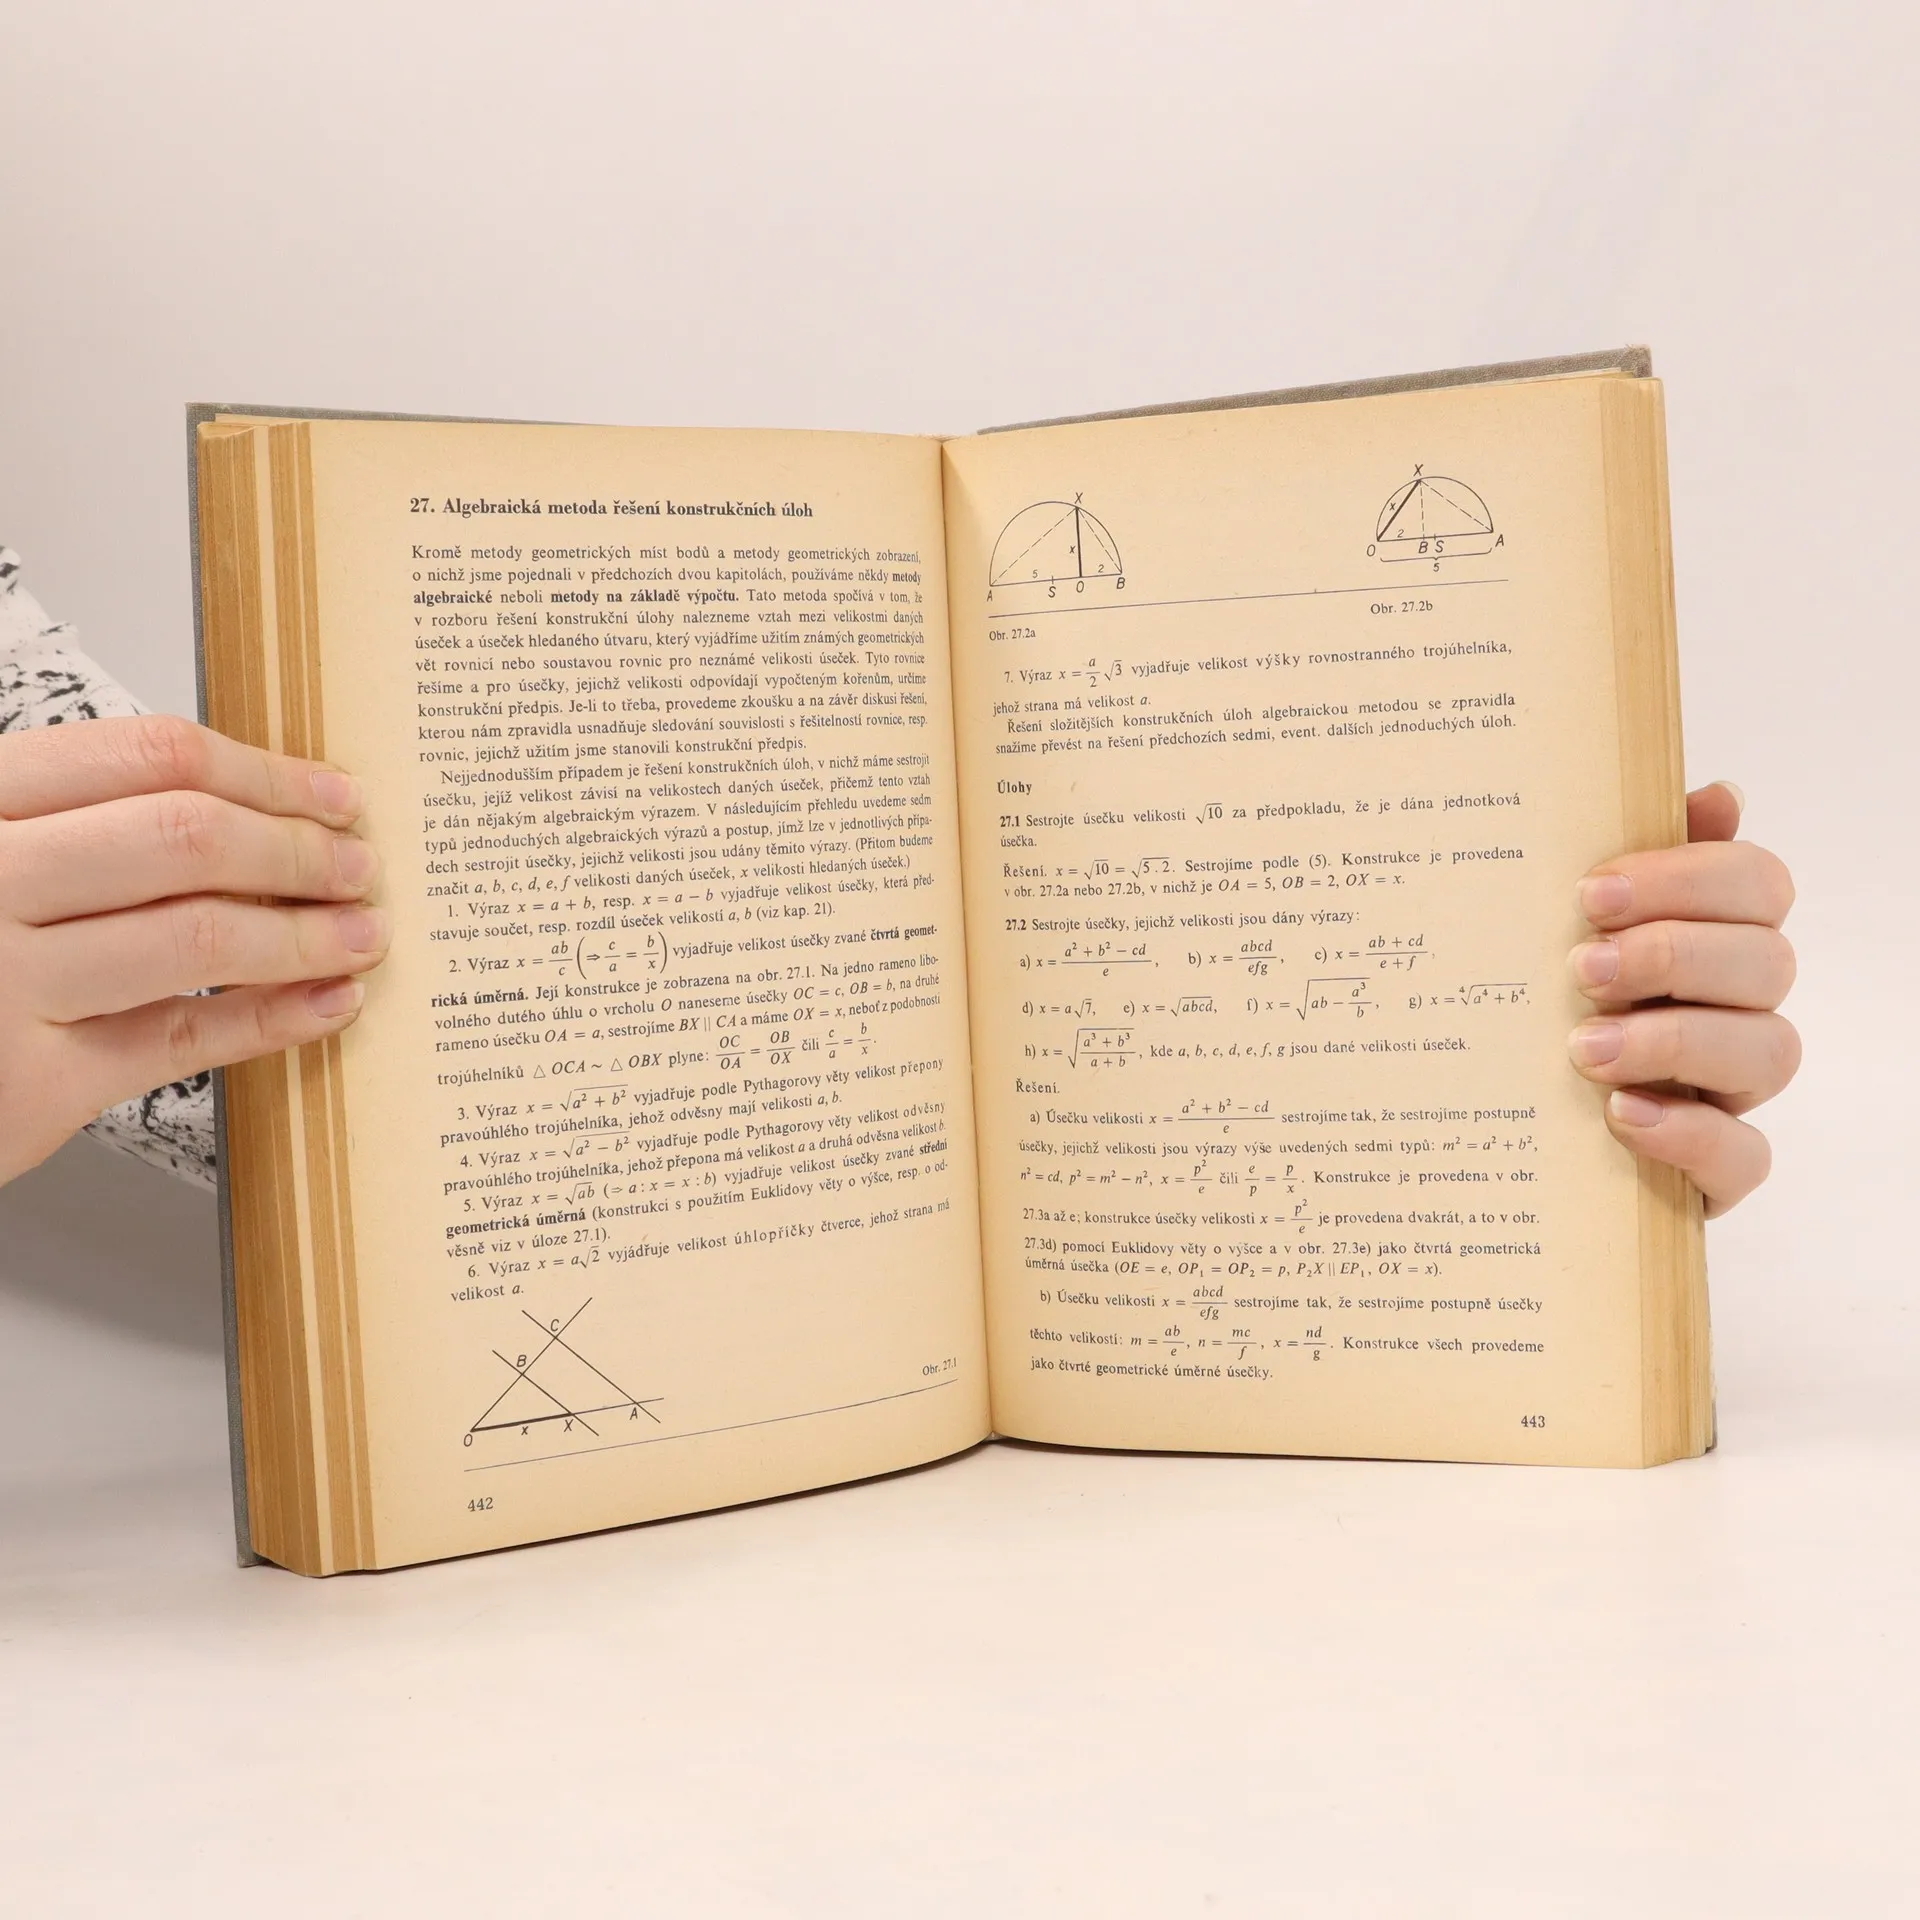 27. Algebraická metoda řešení konstrukčních úloh
Kromě metody geometrických míst bodů a metody geometrických zobrazení,
o nichž jsme pojednali v předchozích dvou kapitolách, používáme někdy metody
algebraické neboli metody na základě výpočtu. Tato metoda spočívá v tom, že
v rozboru řešení konstrukční úlohy nalezneme vztah mezi velikostmi daných
úseček a úseček hledaného útvaru, který vyjádříme užitím známých geometrických
vět rovnicí nebo soustavou rovnic pro neznámé velikosti úseček. Tyto rovnice
řešíme a pro úsečky, jejichž velikosti odpovídají vypočteným kořenům, určíme
konstrukční předpis. Je-li to třeba, provedeme zkoušku a na závěr diskusi řešení,
kterou nám zpravidla usnadňuje sledování souvislosti s řešitelností rovnice, resp.
rovnic, jejichž užitím jsme stanovili konstrukční předpis.
Nejjednodušším případem je řešení konstrukčních úloh, v nichž máme sestrojit
úsečku, jejíž velikost závisí na velikostech daných úseček, přičemž tento vztah
je dán nějakým algebraickým výrazem. V následujícím přehledu uvedeme sedm
typů jednoduchých algebraických výrazů a postup, jímž lze v jednotlivých přípa-
dech sestrojit úsečky, jejichž velikosti jsou udány těmito výrazy. (Přitom budeme
značit a, b, c, d, e, f velikosti daných úseček, x velikosti hledaných úseček.)
1. Výraz x = a + b, resp. x = a − b vyjadřuje velikost úsečky, která před-
stavuje součet, resp. rozdíl úseček velikostí a, b (viz kap. 21).
2. Výraz x = ab/c (⇒ c/a = b/x) vyjadřuje velikost úsečky zvané čtvrtá geomet-
rická úměrná. Její konstrukce je zobrazena na obr. 27.1. Na jedno rameno libo-
volného dutého úhlu o vrcholu O naneseme úsečky OC = c, OB = b, na druhé
rameno úsečku OA = a, sestrojíme BX || CA a máme OX = x, neboť z podobnosti
trojúhelníků △ OCA ~ △ OBX plyne: OC/OA = OB/OX čili c/a = b/x.
3. Výraz x = √(a² + b²) vyjadřuje podle Pythagorovy věty velikost přepony
pravoúhlého trojúhelníka, jehož odvěsny mají velikosti a, b.
4. Výraz x = √(a² − b²) vyjadřuje podle Pythagorovy věty velikost odvěsny
pravoúhlého trojúhelníka, jehož přepona má velikost a a druhá odvěsna velikost b.
5. Výraz x = √ab (⇒ a : x = x : b) vyjadřuje velikost úsečky zvané střední
geometrická úměrná (konstrukci s použitím Euklidovy věty o výšce, resp. o od-
věsně viz v úloze 27.1).
6. Výraz x = a√2 vyjádřuje velikost úhlopříčky čtverce, jehož strana má
velikost a.
C
B
O
x
X
A
Obr. 27.1
442
X
x
5
2
A
S
O
B
Obr. 27.2a
X
x
2
O
B
S
A
5
Obr. 27.2b
7. Výraz x = a/2 √3 vyjadřuje velikost výšky rovnostranného trojúhelníka,
jehož strana má velikost a.
Řešení složitějších konstrukčních úloh algebraickou metodou se zpravidla
snažíme převést na řešení předchozích sedmi, event. dalších jednoduchých úloh.
Úlohy
27.1 Sestrojte úsečku velikosti √10 za předpokladu, že je dána jednotková
úsečka.
Řešení. x = √10 = √5 . 2. Sestrojíme podle (5). Konstrukce je provedena
v obr. 27.2a nebo 27.2b, v nichž je OA = 5, OB = 2, OX = x.
27.2 Sestrojte úsečky, jejichž velikosti jsou dány výrazy:
a) x = (a² + b² − cd)/e, b) x = abcd/efg, c) x = (ab + cd)/(e + f),
d) x = a√7, e) x = √abcd, f) x = √(ab − a³/b), g) x = ⁴√(a⁴ + b⁴),
h) x = √((a³ + b³)/(a + b)), kde a, b, c, d, e, f, g jsou dané velikosti úseček.
Řešení.
a) Úsečku velikosti x = (a² + b² − cd)/e sestrojíme tak, že sestrojíme postupně
úsečky, jejichž velikosti jsou výrazy výše uvedených sedmi typů: m² = a² + b²,
n² = cd, p² = m² − n², x = p²/e čili e/p = p/x. Konstrukce je provedena v obr.
27.3a až e; konstrukce úsečky velikosti x = p²/e je provedena dvakrát, a to v obr.
27.3d) pomocí Euklidovy věty o výšce a v obr. 27.3e) jako čtvrtá geometrická
úměrná úsečka (OE = e, OP₁ = OP₂ = p, P₂X || EP₁, OX = x).
b) Úsečku velikosti x = abcd/efg sestrojíme tak, že sestrojíme postupně úsečky
těchto velikostí: m = ab/e, n = mc/f, x = nd/g. Konstrukce všech provedeme
jako čtvrté geometrické úměrné úsečky.
443